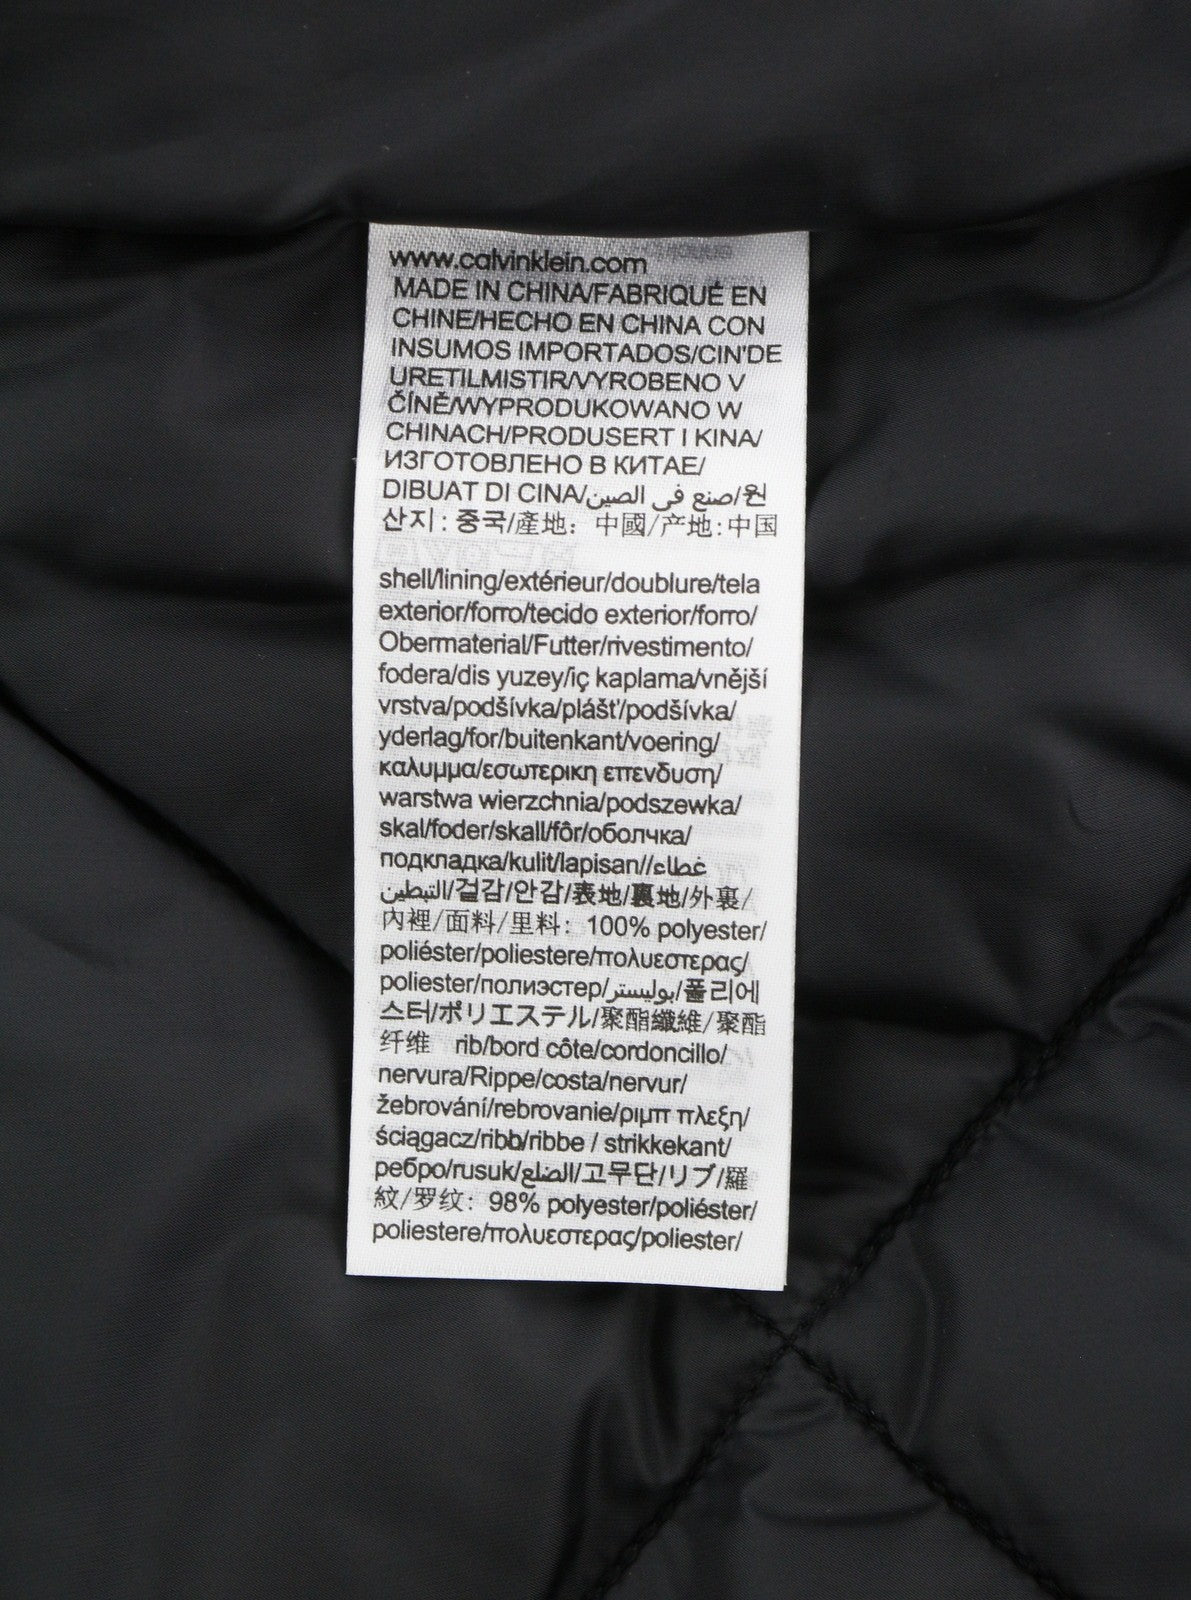 www.calvinklein.com
MADE IN CHINA/FABRIQUÉ EN
CHINE/HECHO EN CHINA CON
INSUMOS IMPORTADOS/CIN'DE
URETILMISTIR/VYROBENO V
ČÍNĚ/WYPRODUKOWANO W
CHINACH/PRODUSERT I KINA/
ИЗГОТОВЛЕНО В КИТАЕ/
DIBUAT DI CINA/صنع في الصين/원
산지: 중국/產地: 中國/产地:中国
shell/lining/extérieur/doublure/tela
exterior/forro/tecido exterior/forro/
Obermaterial/Futter/rivestimento/
fodera/dis yuzey/iç kaplama/vnější
vrstva/podšívka/plášť/podšívka/
yderlag/for/buitenkant/voering/
καλυμμα/εσωτερικη επενδυση/
warstwa wierzchnia/podszewka/
skal/foder/skall/fôr/оболчка/
подкладка/kulit/lapisan//غطاء
التبطين/겉감/안감/表地/裏地/外裏/
內裡/面料/里料: 100% polyester/
poliéster/poliestere/πολυεστερας/
poliester/полиэстер/بوليستر/폴리에
스터/ポリエステル/聚酯纖維/聚酯
纤维 rib/bord côte/cordoncillo/
nervura/Rippe/costa/nervur/
žebrování/rebrovanie/ριμπ πλεξη/
ściągacz/ribb/ribbe / strikkekant/
ребро/rusuk/الضلع/고무단/リブ/羅
紋/罗纹: 98% polyester/poliéster/
poliestere/πολυεστερας/poliester/